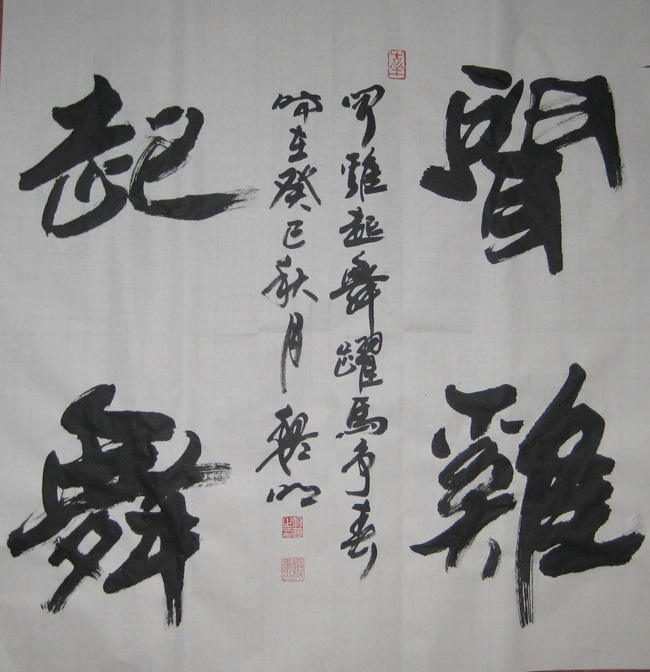 聞雞
起舞
聞雞起舞躍馬争春
時在癸巳秋月黎明